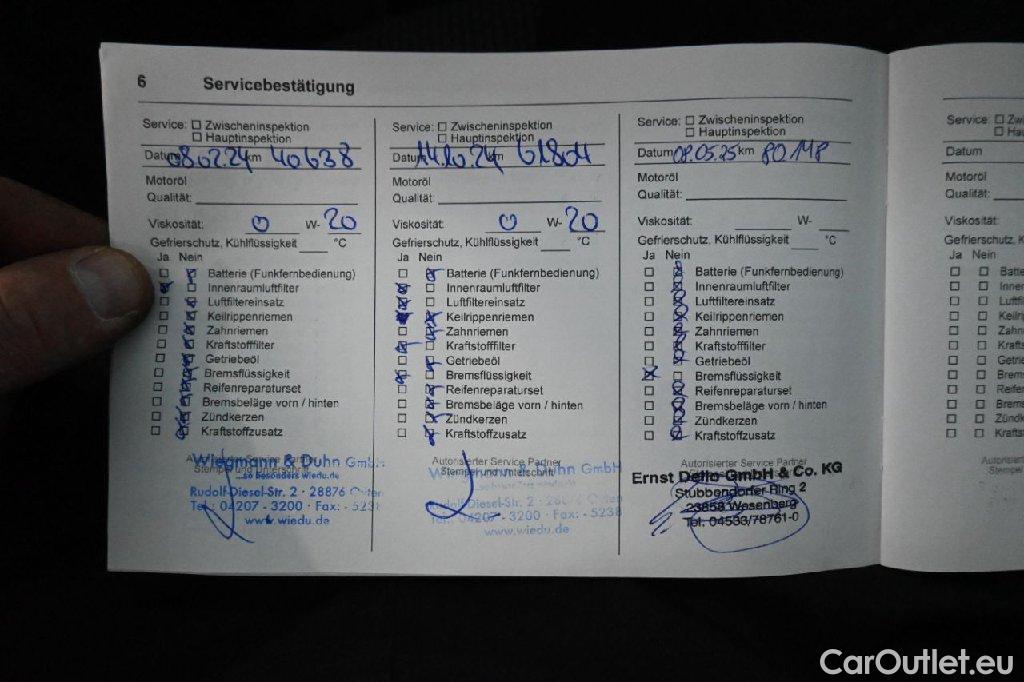 6 Servicebestätigung
Service: Zwischeninspektion
Hauptinspektion
Datum 08.02.24 km 40638
Motoröl
Qualität:
Viskosität: 0 W- 20
Gefrierschutz, Kühlflüssigkeit °C
Ja Nein
Batterie (Funkfernbedienung)
Innenraumluftfilter
Luftfiltereinsatz
Keilrippenriemen
Zahnriemen
Kraftstofffilter
Getriebeöl
Bremsflüssigkeit
Reifenreparaturset
Bremsbeläge vorn / hinten
Zündkerzen
Kraftstoffzusatz
Autorisierter Service Partner
Stempel und Unterschrift
Wiegmann & Duhn GmbH
...so besonders wiedu.de
Rudolf-Diesel-Str. 2 · 28876
Tel.: 04207 - 3200 · Fax: - 523
www.wiedu.de
Service: Zwischeninspektion
Hauptinspektion
Datum 14.10.24 61804
Motoröl
Qualität:
Viskosität: 0 W- 20
Gefrierschutz, Kühlflüssigkeit °C
Ja Nein
Batterie (Funkfernbedienung)
Innenraumluftfilter
Luftfiltereinsatz
Keilrippenriemen
Zahnriemen
Kraftstofffilter
Getriebeöl
Bremsflüssigkeit
Reifenreparaturset
Bremsbeläge vorn / hinten
Zündkerzen
Kraftstoffzusatz
Autorisierter Service Partner
Stempel und Unterschrift
Duhn GmbH
Rudolf-Diesel-Str. 2
Tel.: 04207 - 3200 · Fax: - 523
www.wiedu.de
Service: Zwischeninspektion
Hauptinspektion
Datum 08.05.25 km 80118
Motoröl
Qualität:
Viskosität: W-
Gefrierschutz, Kühlflüssigkeit °C
Ja Nein
Batterie (Funkfernbedienung)
Innenraumluftfilter
Luftfiltereinsatz
Keilrippenriemen
Zahnriemen
Kraftstofffilter
Getriebeöl
Bremsflüssigkeit
Reifenreparaturset
Bremsbeläge vorn / hinten
Zündkerzen
Kraftstoffzusatz
Autorisierter Service Partner
Ernst Dello GmbH & Co. KG
Stubbendorfer Ring 2
23858 Wesenberg
Tel. 04533/78761-0
Service: Zw
Ha
Datum
Motoröl
Qualität:
Viskosität
Gefrierschutz, K
Ja Nein
Batte
Innen
Luftfi
Keilri
Zahn
Kraft
Getri
Brem
Reife
Brem
Zünd
Kraft
Autorisie
Stempe
CarOutlet.eu